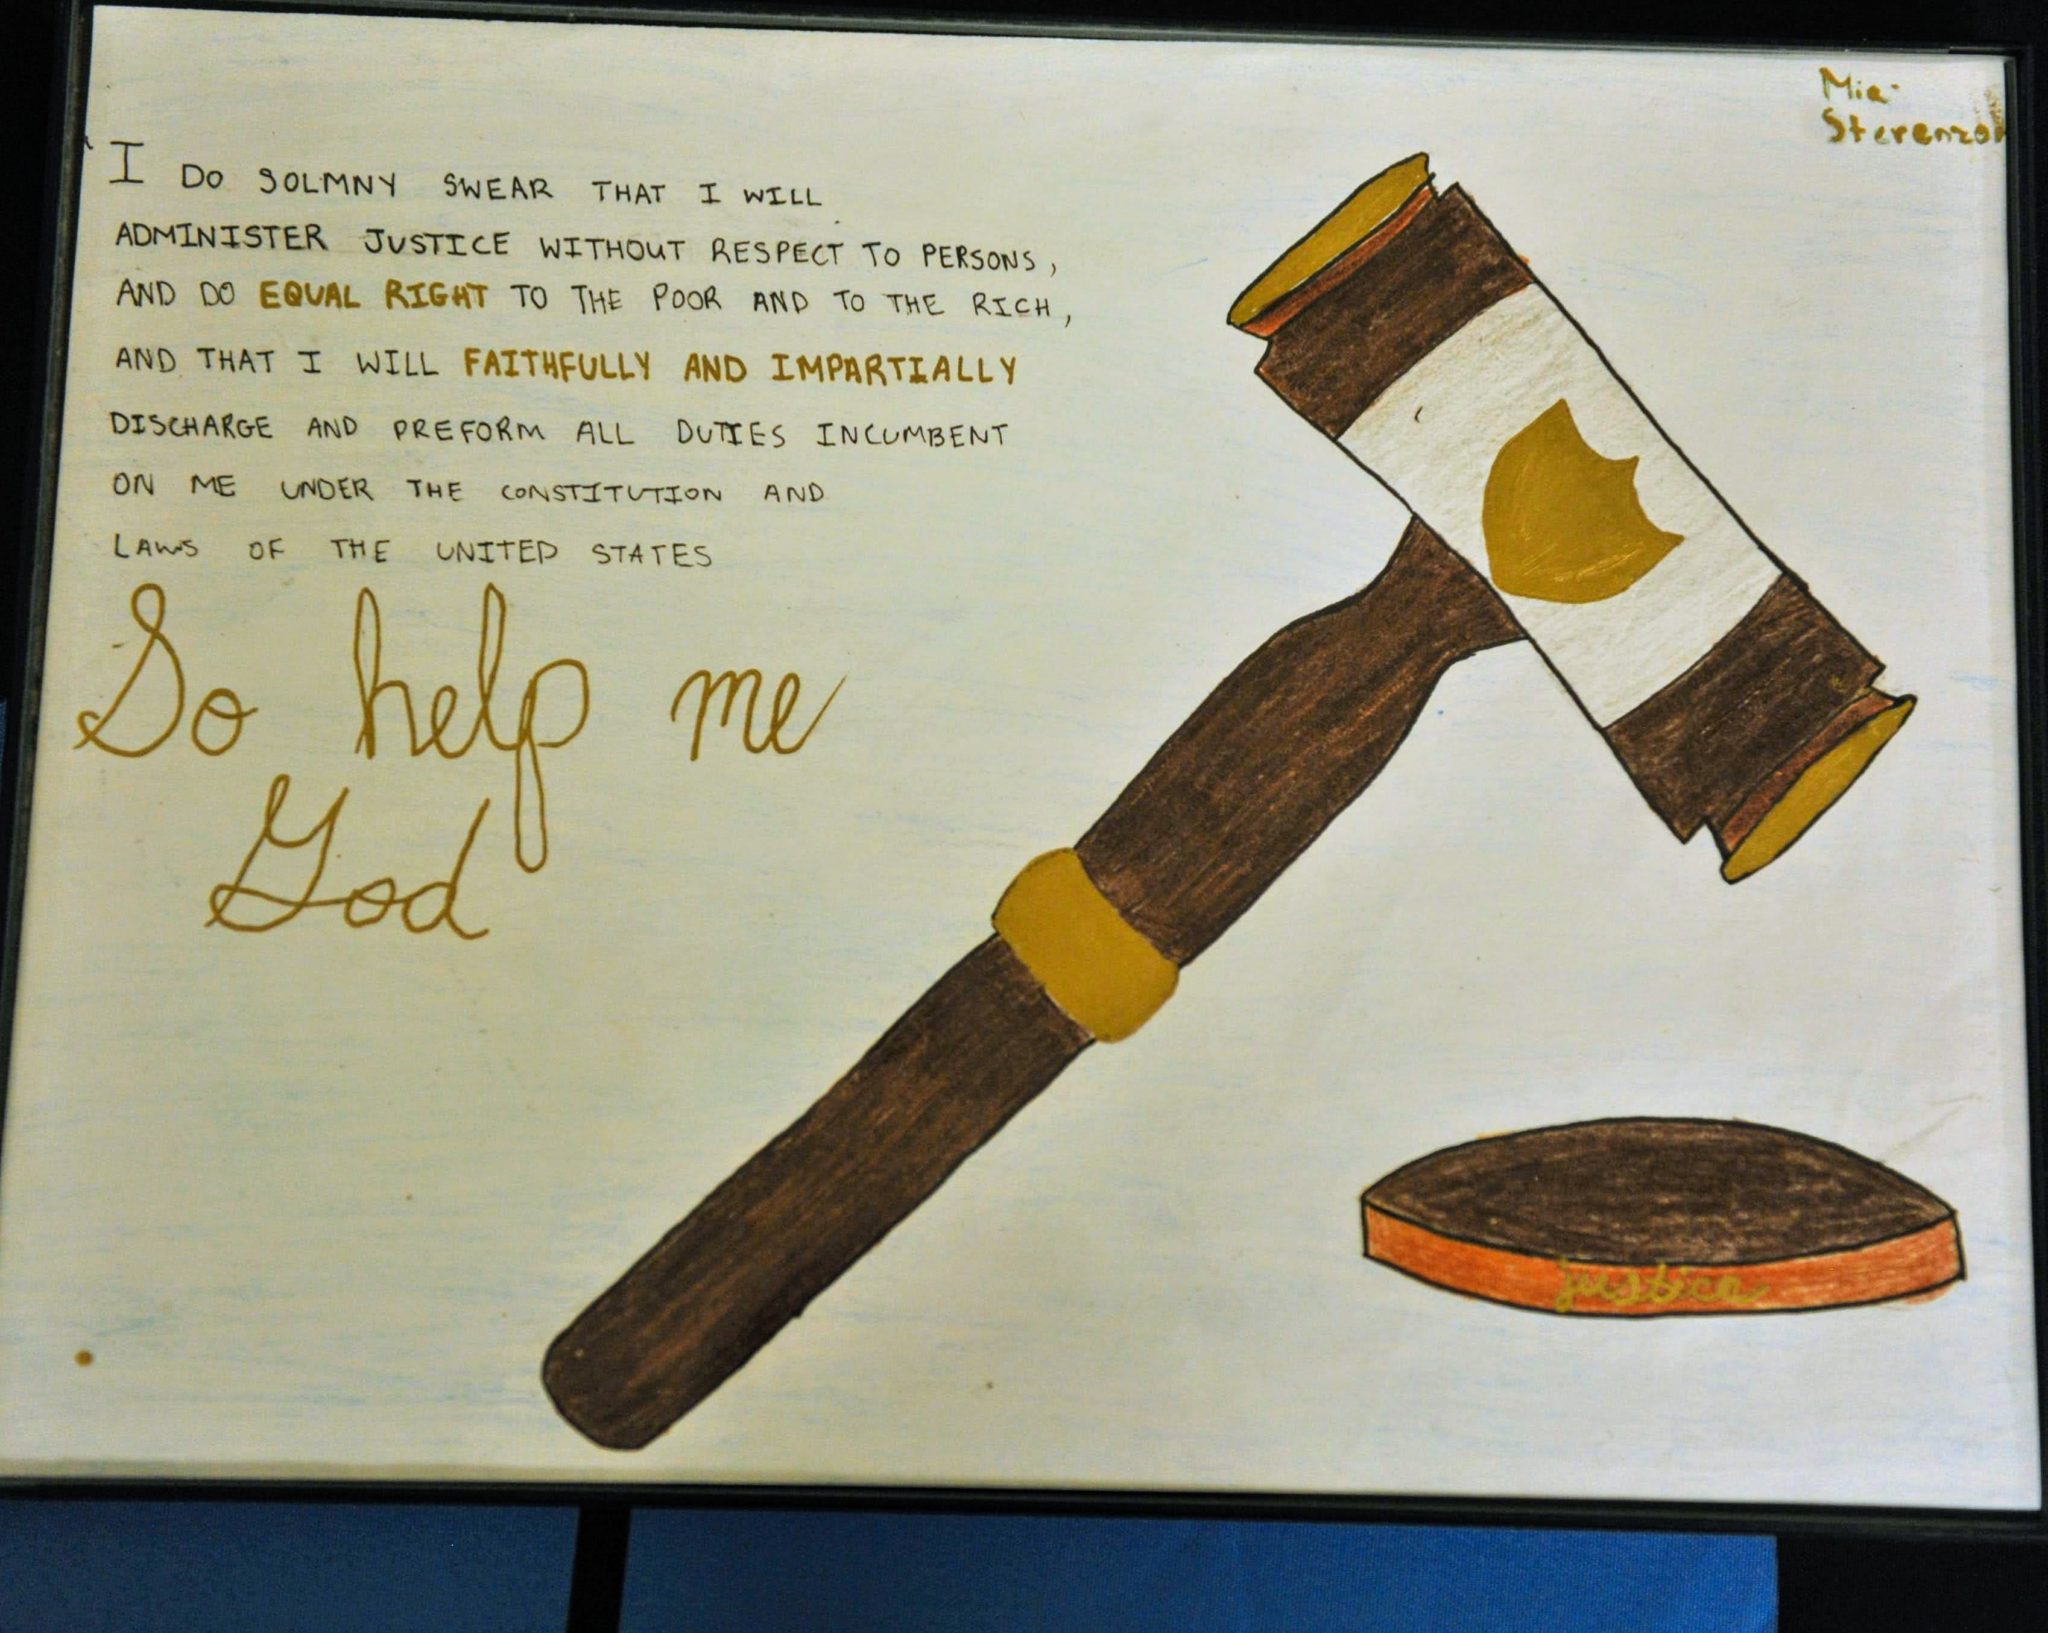 Mia
I DO SOLMNY SWEAR THAT I WILL
ADMINISTER JUSTICE WITHOUT RESPECT TO PERSONS,
AND DO EQUAL RIGHT TO THE POOR AND TO THE RICH,
AND THAT I WILL FAITHFULLY AND IMPARTIALLY
DISCHARGE AND PREFORM ALL DUTIES INCUMBENT
ON ME UNDER THE CONSTITUTION AND
LAWS OF THE UNITED STATES
So help me
God
justice